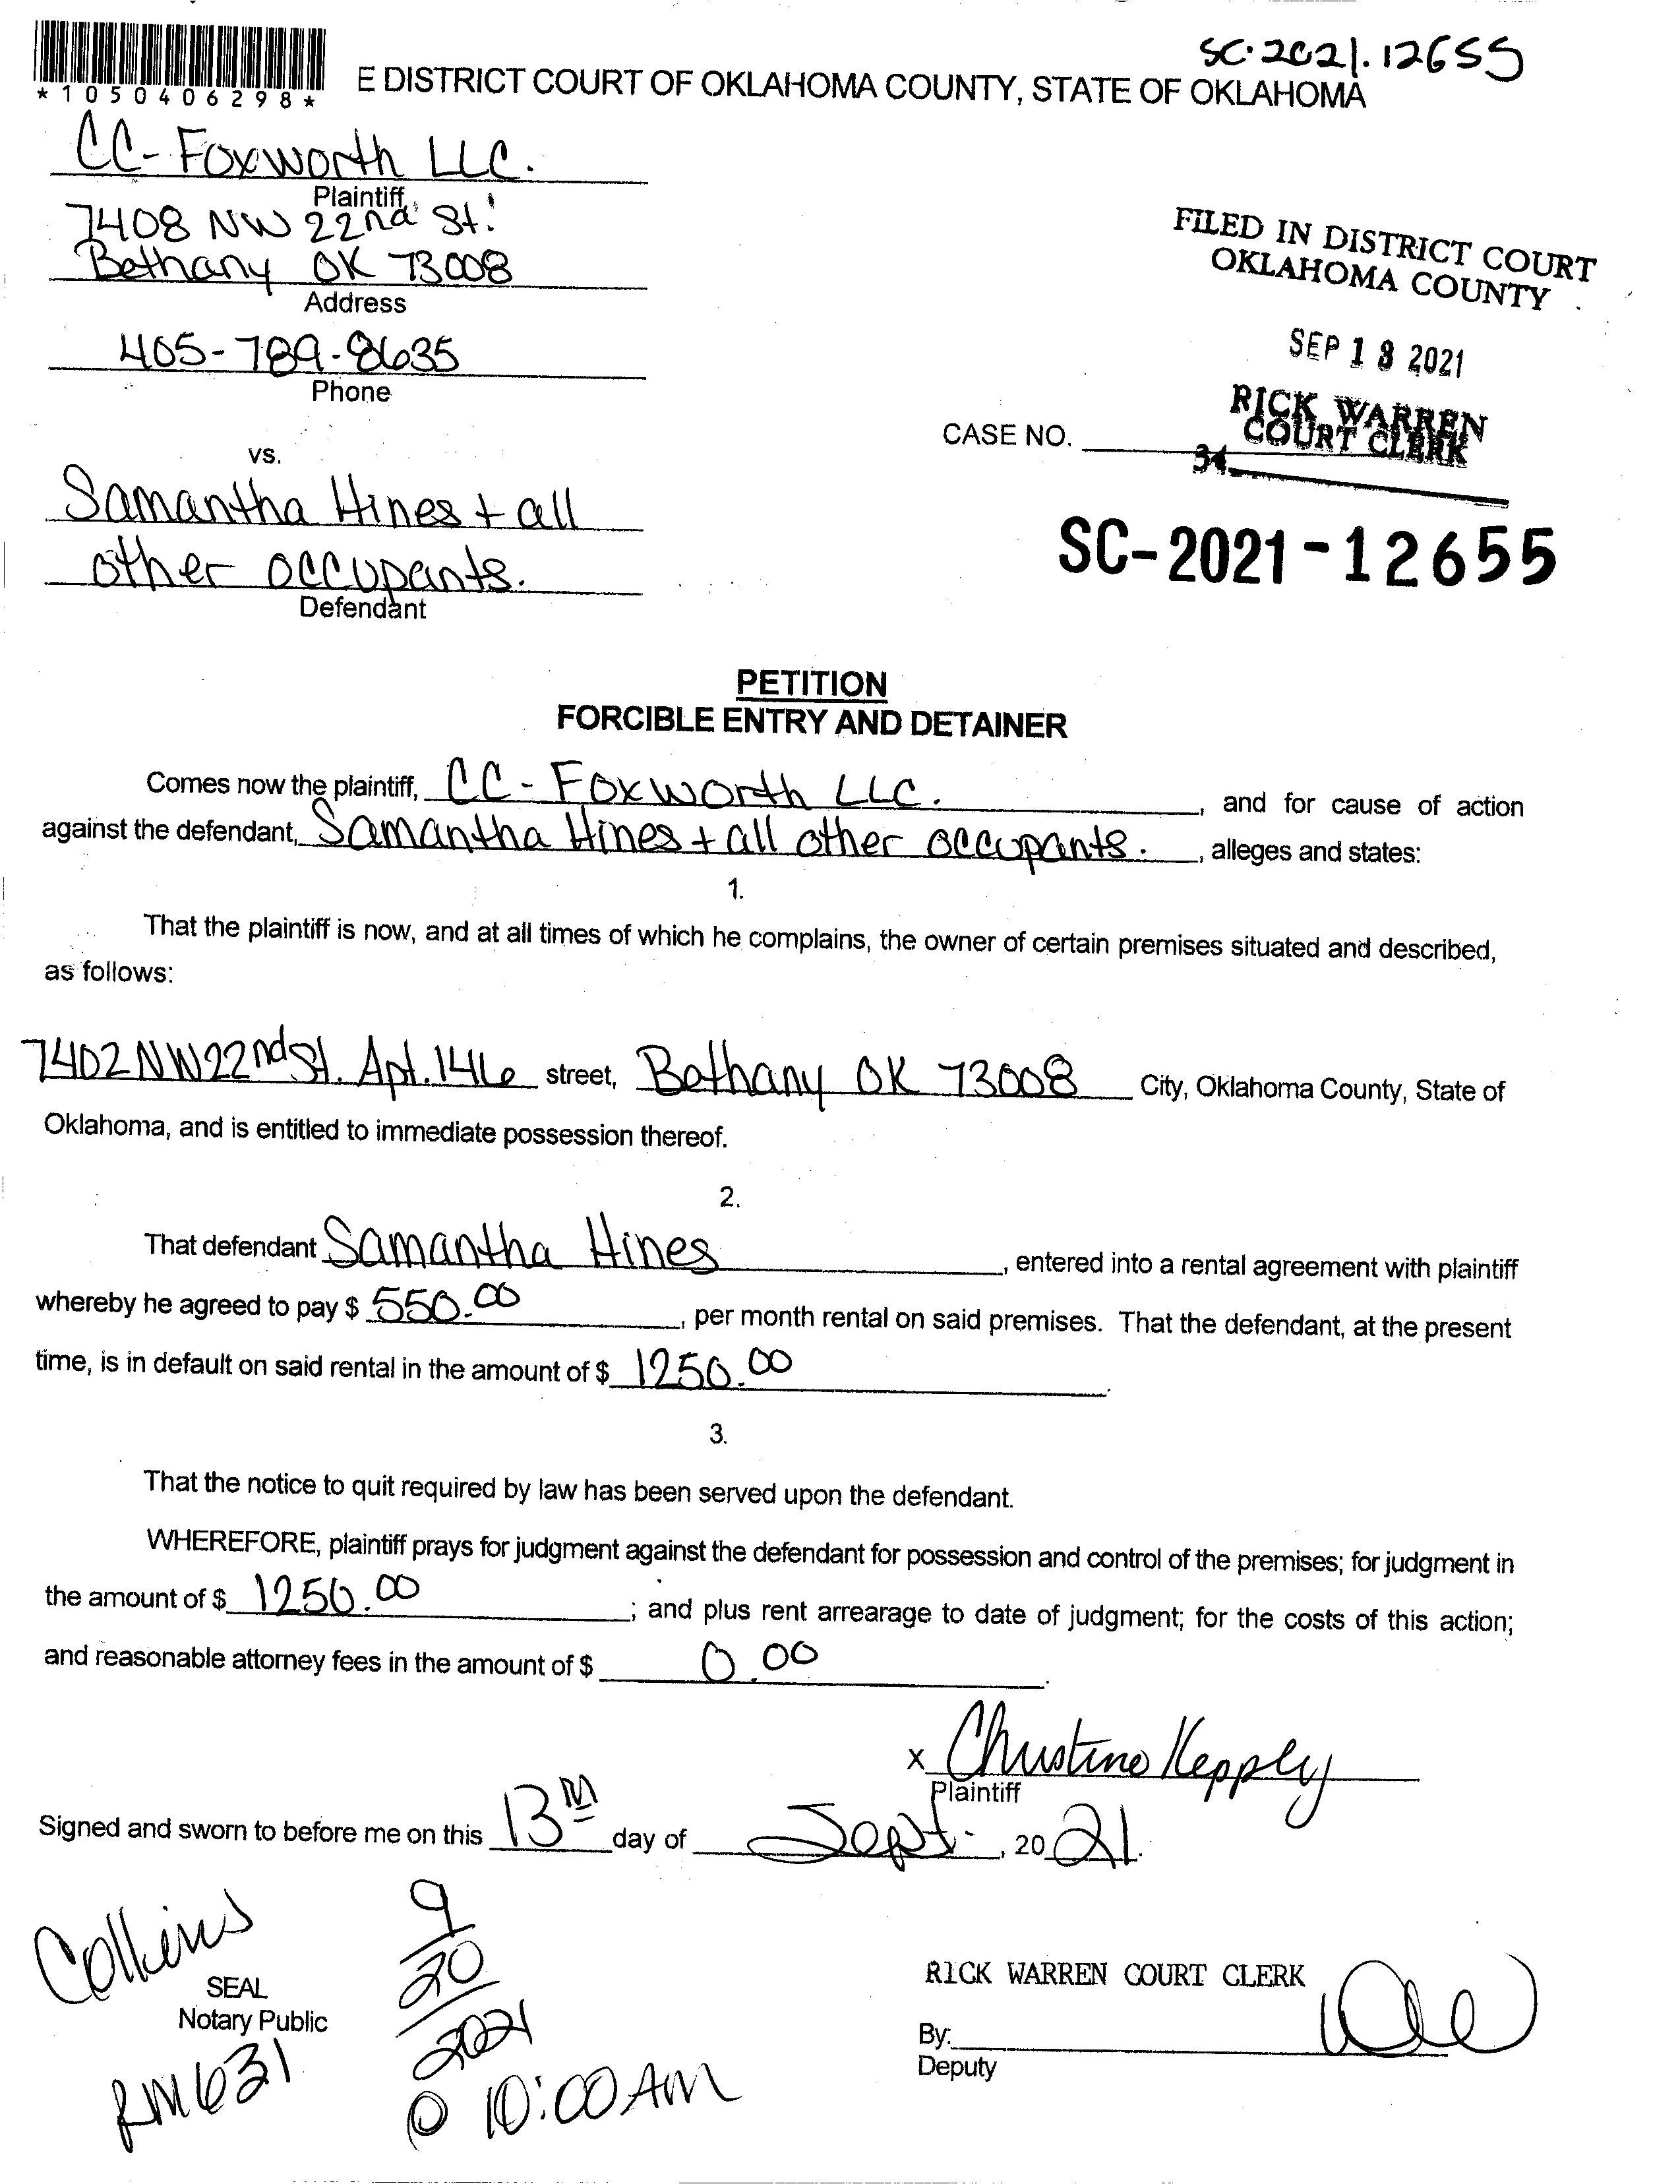 SC.2021.12655
*1050406298*
E DISTRICT COURT OF OKLAHOMA COUNTY, STATE OF OKLAHOMA
CC-Foxworth LLC.
Plaintiff
7408 NW 22nd St.
Bethany OK 73008
Address
405-789-8635
Phone
FILED IN DISTRICT COURT
OKLAHOMA COUNTY
SEP 13 2021
RICK WARREN
COURT CLERK
CASE NO.
34
vs.
Samantha Hines + all
other occupants.
Defendant
SC-2021-12655
PETITION
FORCIBLE ENTRY AND DETAINER
Comes now the plaintiff, CC-Foxworth LLC. , and for cause of action
against the defendant, Samantha Hines + all other occupants. , alleges and states:
1.
That the plaintiff is now, and at all times of which he complains, the owner of certain premises situated and described,
as follows:
7402 NW 22nd St. Apt. 146 street, Bethany OK 73008 City, Oklahoma County, State of
Oklahoma, and is entitled to immediate possession thereof.
2.
That defendant Samantha Hines , entered into a rental agreement with plaintiff
whereby he agreed to pay $ 550.00 , per month rental on said premises. That the defendant, at the present
time, is in default on said rental in the amount of $ 1250.00 .
3.
That the notice to quit required by law has been served upon the defendant.
WHEREFORE, plaintiff prays for judgment against the defendant for possession and control of the premises; for judgment in
the amount of $ 1250.00 ; and plus rent arrearage to date of judgment; for the costs of this action;
and reasonable attorney fees in the amount of $ 0.00 .
x Christine Kepply
Plaintiff
Signed and sworn to before me on this 13th day of Sept. , 20 21.
Collins
SEAL
Notary Public
RM631
9
20
2021
@ 10:00 AM
RICK WARREN COURT CLERK
By:
Deputy